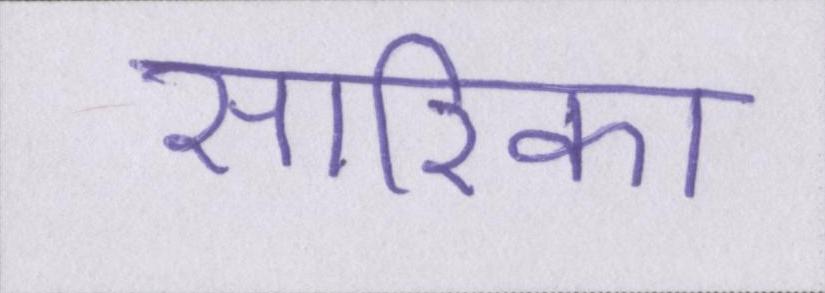 सारिका